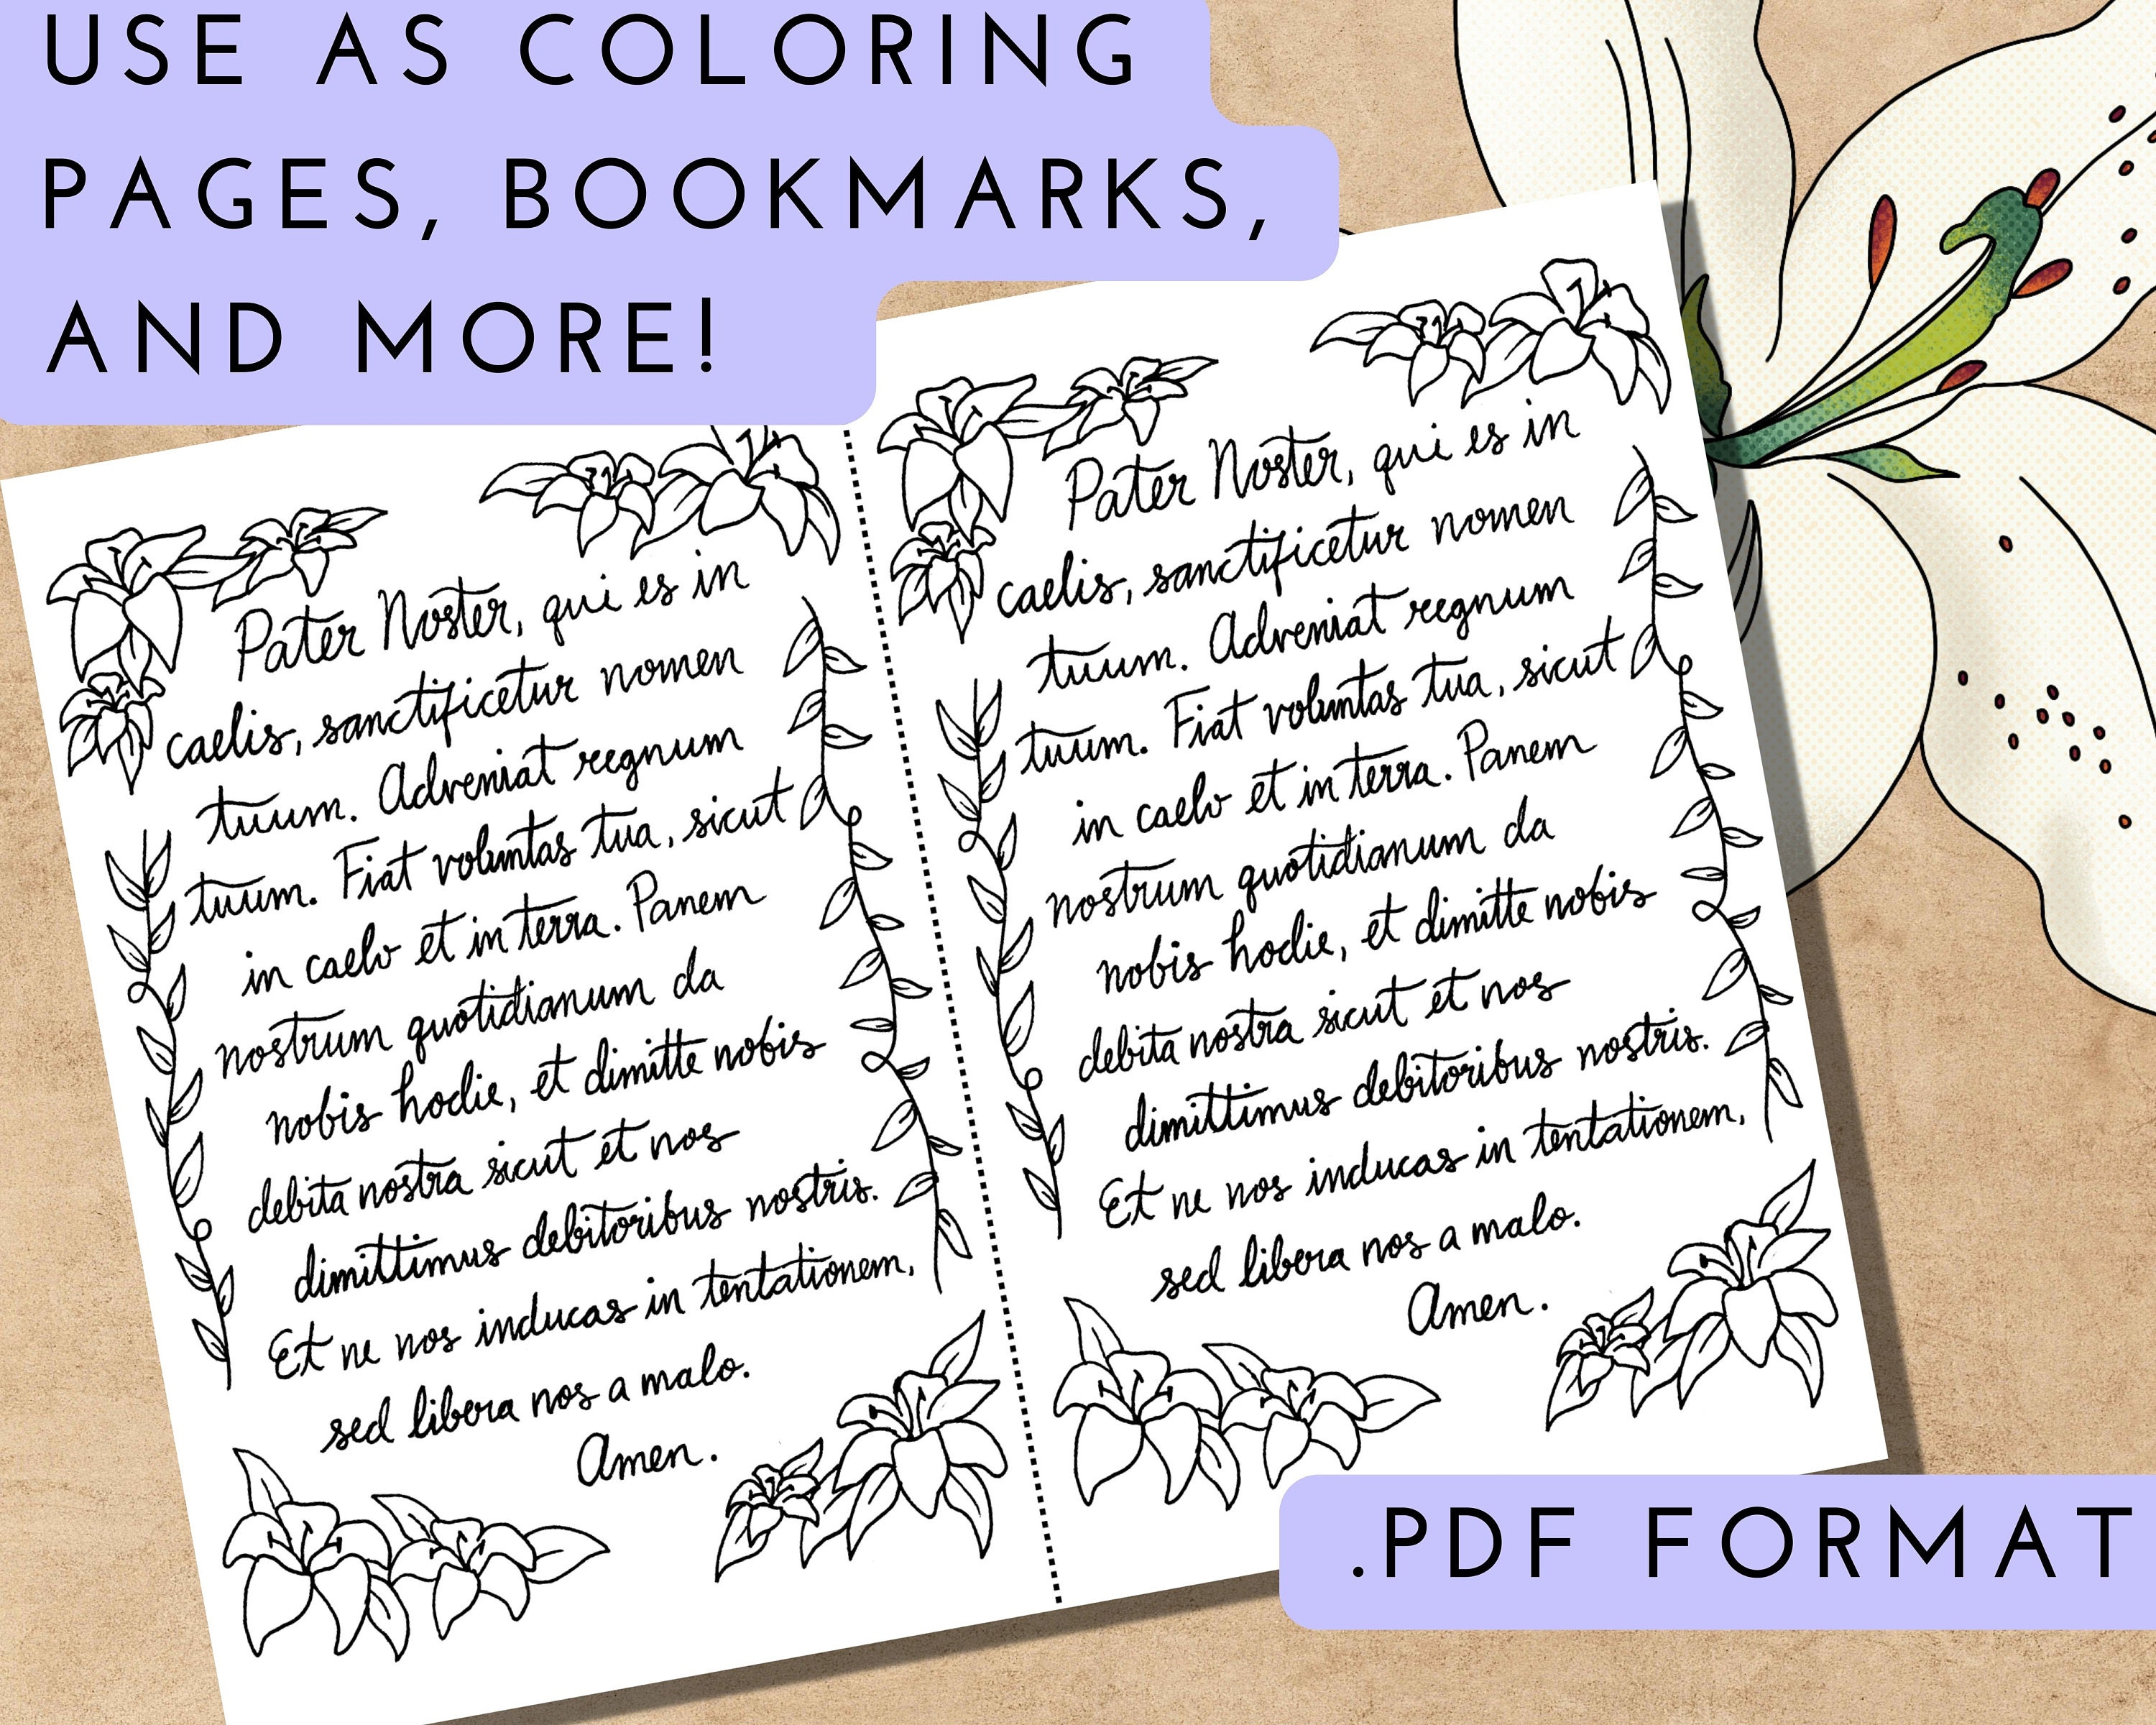 USE AS COLORING
PAGES, BOOKMARKS,
AND MORE!
Pater Noster, qui es in
caelis, sanctificetur nomen
tuum. Adveniat regnum
tuum. Fiat voluntas tua, sicut
in caelo et in terra. Panem
nostrum quotidianum da
nobis hodie, et dimitte nobis
debita nostra sicut et nos
dimittimus debitoribus nostris.
Et ne nos inducas in tentationem,
sed libera nos a malo.
Amen.
Pater Noster, qui es in
caelis, sanctificetur nomen
tuum. Adveniat regnum
tuum. Fiat voluntas tua, sicut
in caelo et in terra. Panem
nostrum quotidianum da
nobis hodie, et dimitte nobis
debita nostra sicut et nos
dimittimus debitoribus nostris.
Et ne nos inducas in tentationem,
sed libera nos a malo.
Amen.
.PDF FORMAT